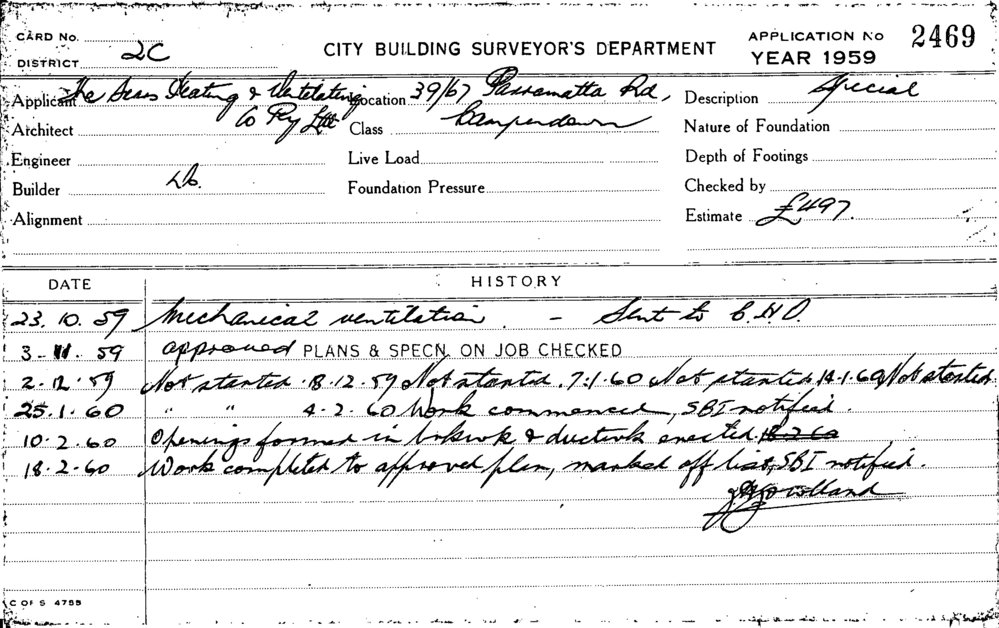 CARD No. APPLICATION No 2469
DISTRICT 2C CITY BUILDING SURVEYOR'S DEPARTMENT YEAR 1959
Applicant The Heating & Ventilating Location 39/67 Parramatta Rd, Description Special
Architect Co Pty Ltd Class Camperdown Nature of Foundation
Engineer Live Load Depth of Footings
Builder Foundation Pressure Checked by
Alignment Estimate £497.
DATE HISTORY
23.10.59 Mechanical ventilation. - Sent to C.H.O.
3-11.59 approved PLANS & SPECN. ON JOB CHECKED
2.12.59 Not started. 18.12.59 Not started. 7.1.60 Not started 14.1.60 Not started
25.1.60 " " 4.2.60 Work commenced, SBI notified.
10.2.60 Openings formed in brkwk & ductwk erected. 18.2.60
18-2-60 Work completed to approved plan, marked off list, SBI notified.
C OF S 4755